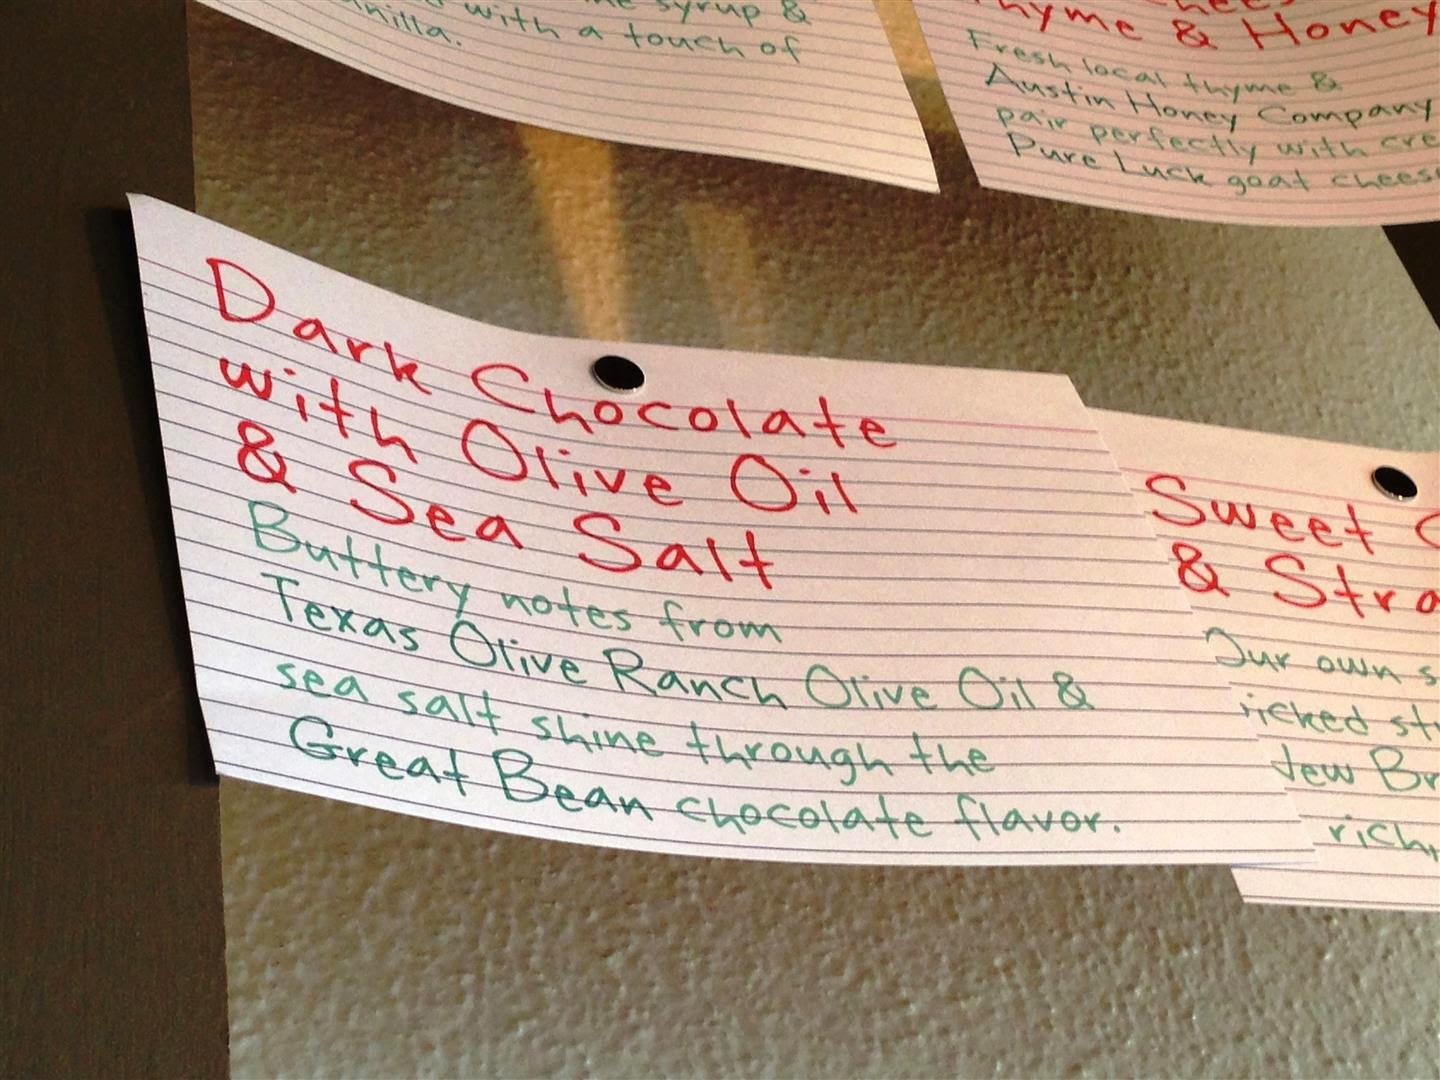 syrup &
with a touch of
Thyme & Honey
Fresh local thyme &
Austin Honey Company
pair perfectly with
Pure Luck goat
Dark Chocolate
with Olive Oil
& Sea Salt
Buttery notes from
Texas Olive Ranch Olive Oil &
sea salt shine through the
Great Bean chocolate flavor.
Sweet
&
Our own